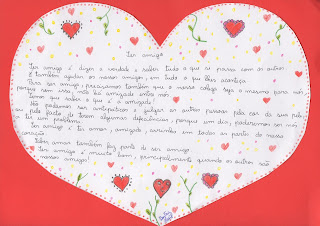 Ser amigo
Ser amigo é dizer a verdade e saber tudo o que se passa com os outros.
É também ajudar os nossos amigos, em tudo o que lhes aconteça.
Para ser amigo, precisamos também que o nosso colega seja o mesmo para nós,
porque sem isso, não há amizade entre nós.
Temos que saber o que é a amizade!
Não podemos ser antipáticos e julgar as outras pessoas pela cor da sua pele,
ou pelo facto de terem algumas deficiências, porque um dia, poderemos ser nós
a ter um problema.
Ser amigo é ter amor, amizade, carinho em todas as partes do nosso
coração.
Saber amar também faz parte de ser amigo.
Ter amigos é muito bom, principalmente quando os outros são
nossos amigos!